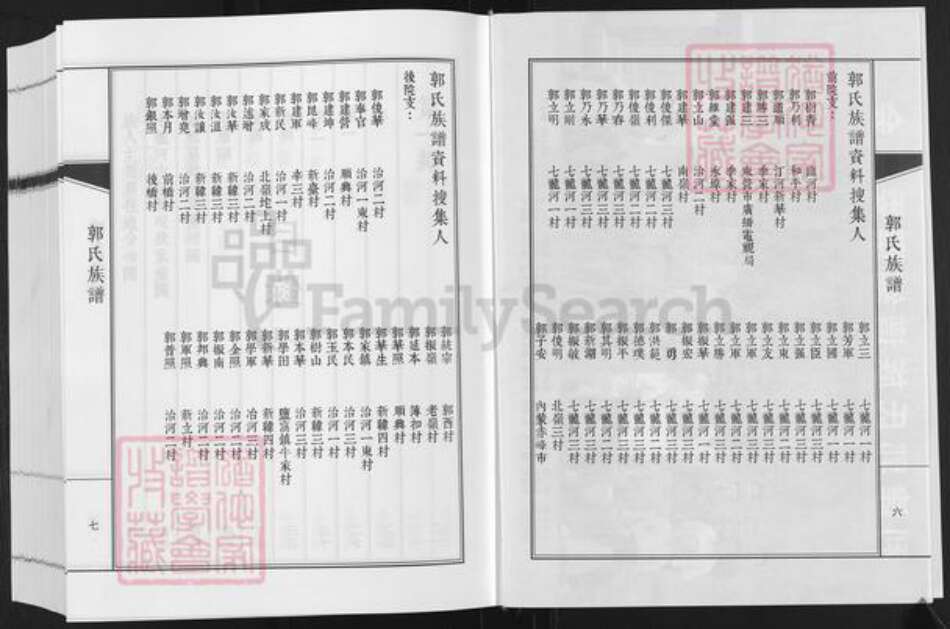 郭氏族譜資料搜集人
前陸支：
郭樹青 臨河村
郭乃利 和平村
郭道順 汀河新華村
郭勝三 季家村
郭建三 東營市廣播電視局
郭建強 季家村
郭維堂 永埠村
郭立山 洽河二村
郭建華 南嶺村
郭俊傑 七龍河三村
郭俊利 七龍河二村
郭俊嶺 七龍河二村
郭乃春 七龍河三村
郭乃華 七龍河三村
郭乃永 七龍河三村
郭立剛 七龍河一村
郭立明 七龍河一村
郭立三 七龍河一村
郭芳軍 七龍河一村
郭立國 七龍河二村
郭立臣 七龍河三村
郭立強 七龍河三村
郭立東 七龍河二村
郭立友 七龍河三村
郭立軍 七龍河三村
郭立勝 七龍河二村
郭振華 七龍河一村
郭振宏 七龍河二村
郭勇 七龍河二村
郭洪範 七龍河二村
郭德璞 七龍河三村
郭振平 七龍河三村
郭其明 七龍河三村
郭新湖 七龍河三村
郭振敏 七龍河三村
郭俊明 北嶺三村
郭子安 內蒙赤峰市
郭氏族譜
六
郭氏族譜資料搜集人
後陸支：
郭俊華 洽河二村
郭奉官 洽河一東村
郭建營 順興村
郭建坤 洽河二村
郭昆峰 新臺村
郭建軍 李三村
郭新民 洽河一村
郭家成 北嶺坨上村
郭連增 洽河二村
郭汝華 新韓三村
郭汝溫 新韓三村
郭汝謙 新韓三村
郭增堯 洽河二村
郭本月 前橋村
郭銀照 後橋村
郭統宗 郭西村
郭振嶺 老嶺村
郭延本 簿扣村
郭華照 順興村
郭華生 新韓四村
郭家鎮 洽河一東村
郭本民 洽河三村
郭玉民 洽河一村
郭樹山 新韓三村
郭本華 洽河三村
郭學田 鹽窩鎮牛家村
郭新華 新韓四村
郭學軍 治河三村
郭金照 洽河二村
郭振南 洽河二村
郭邦典 洽河二村
郭軍照 新立村
郭普照 洽河二村
郭氏族譜
七
FamilySearch